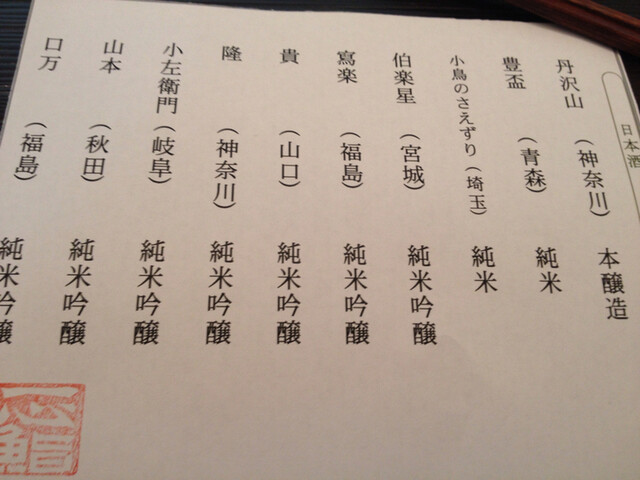 日本酒
丹沢山 (神奈川) 本醸造
豊盃 (青森) 純米
小鳥のさえずり (埼玉) 純米
伯楽星 (宮城) 純米吟醸
寫楽 (福島) 純米吟醸
貴 (山口) 純米吟醸
隆 (神奈川) 純米吟醸
小左衛門 (岐阜) 純米吟醸
山本 (秋田) 純米吟醸
口万 (福島) 純米吟醸